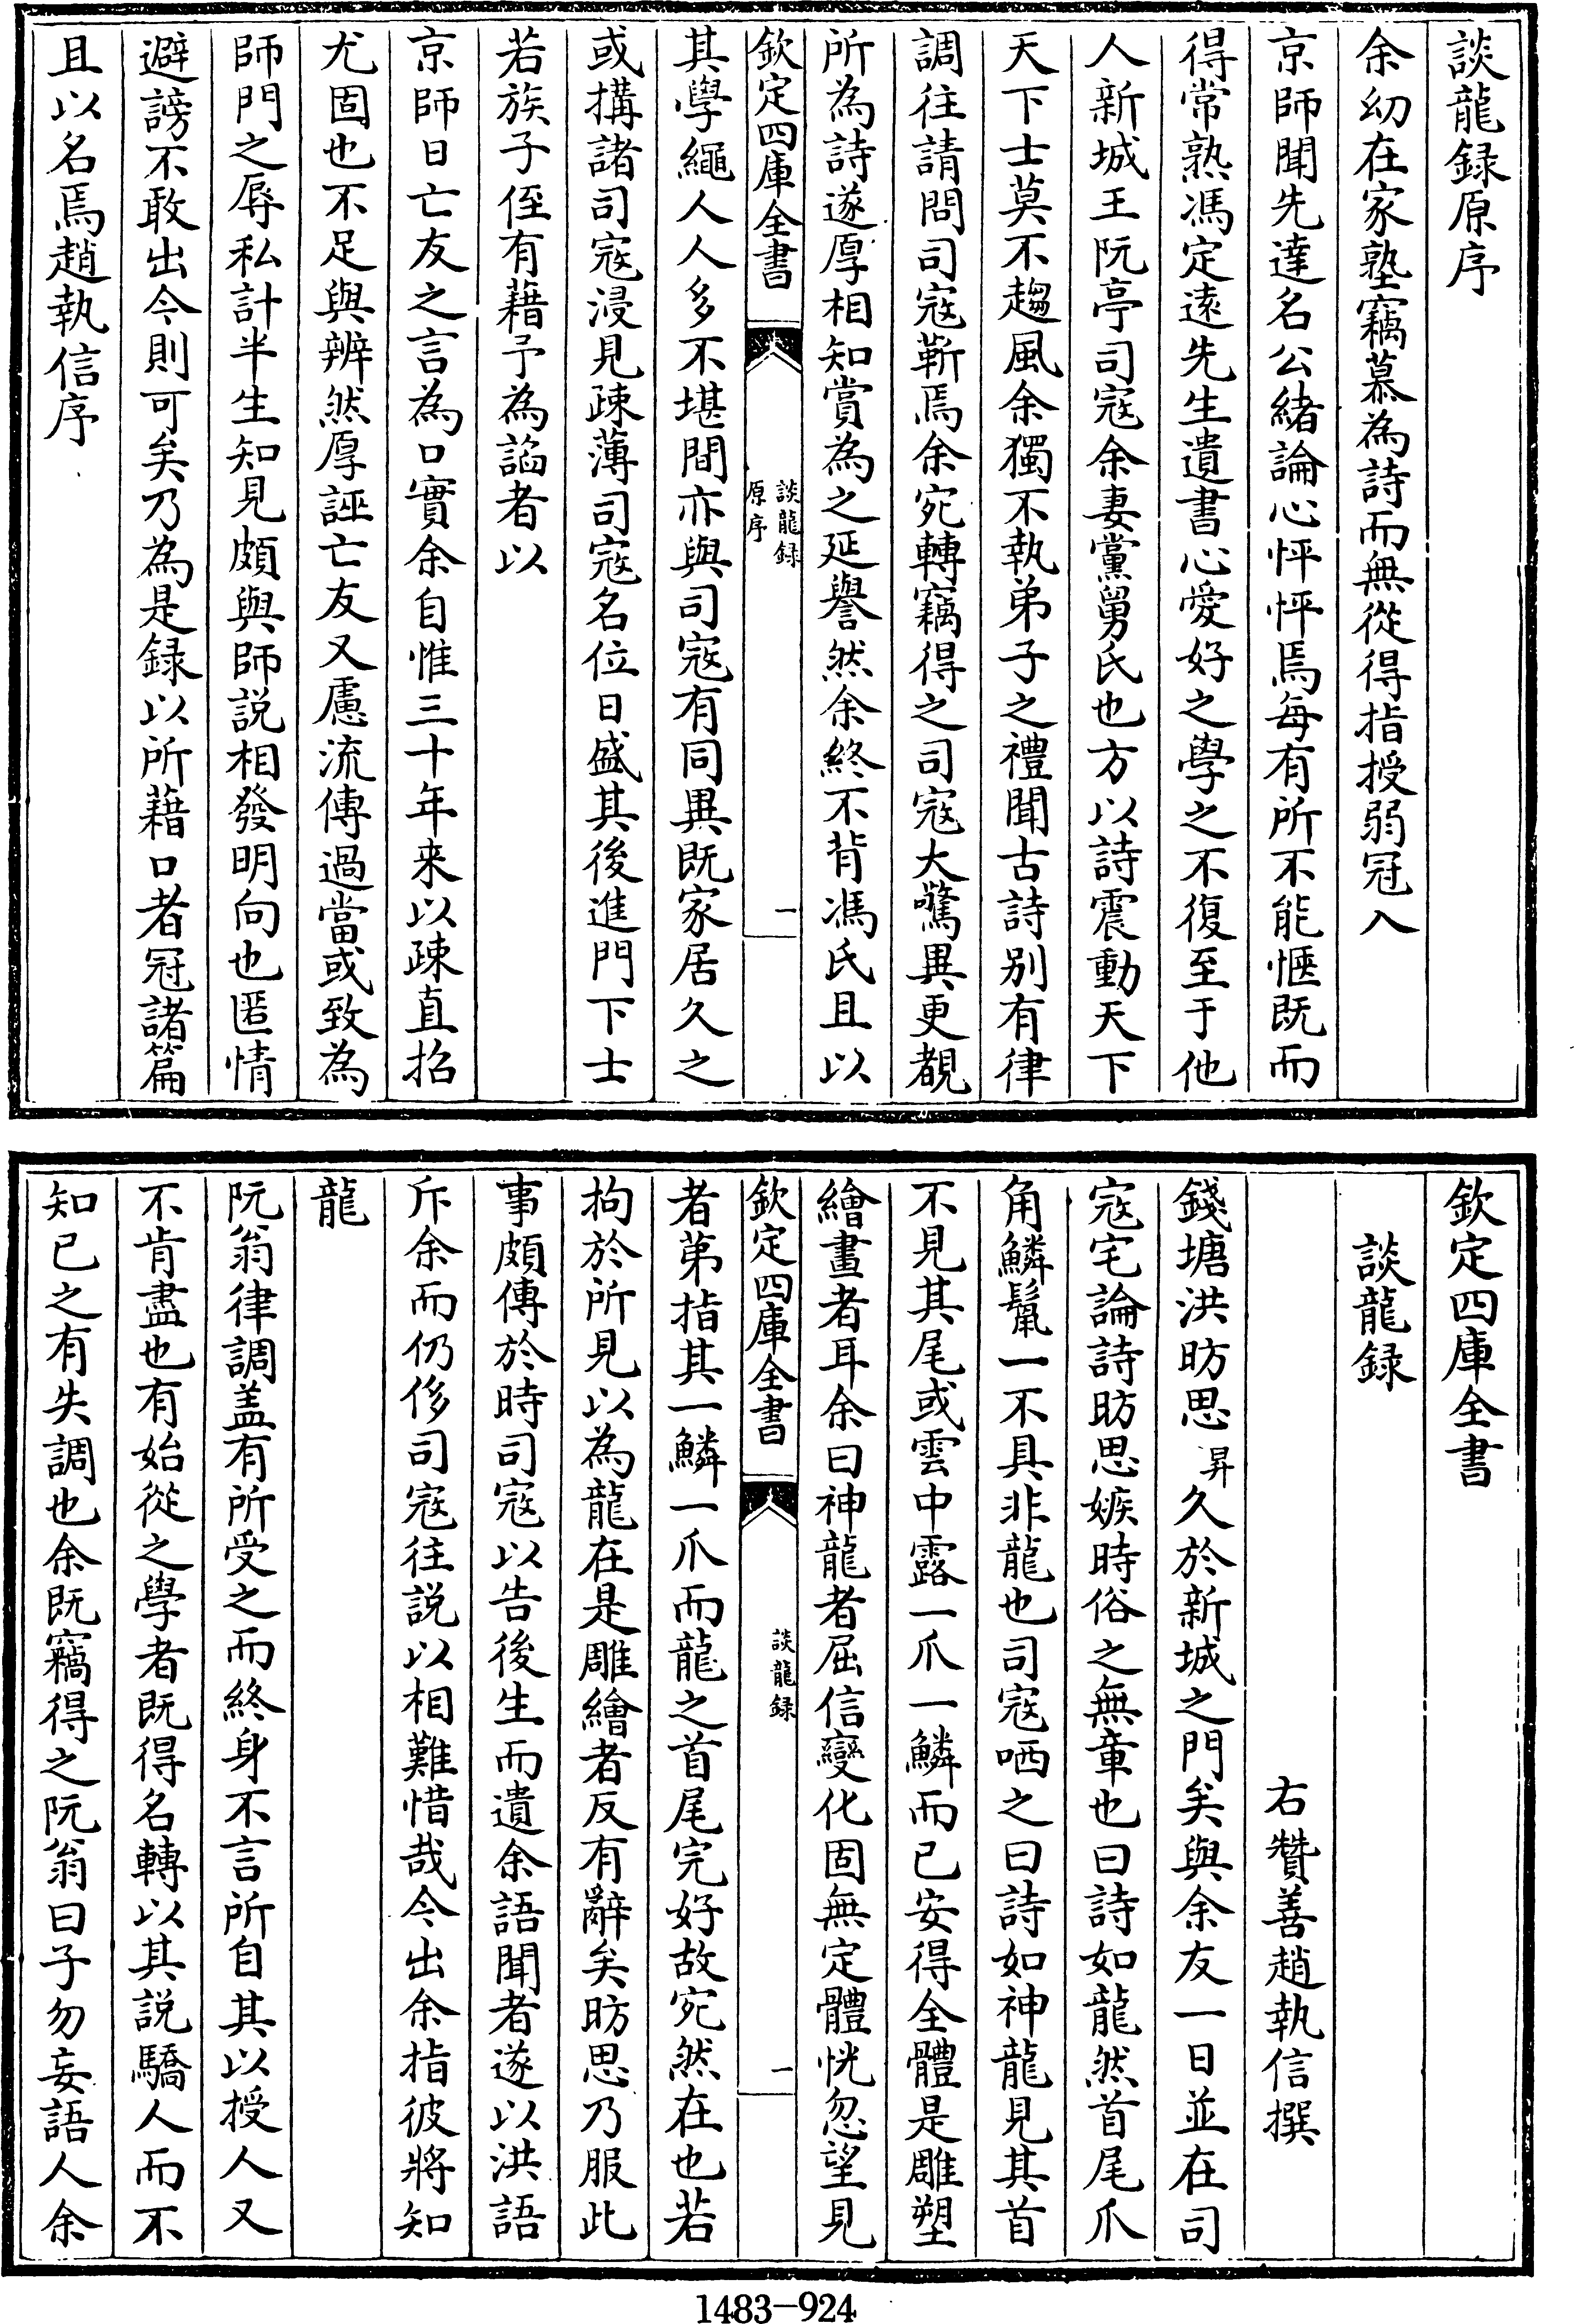 談龍録原序
余幼在家塾竊慕為詩而無從得指授弱冠入
京師聞先達名公緒論心怦怦焉每有所不能愜既而
得常熟馮定遠先生遺書心愛好之學之不復至于他
人新城王阮亭司寇余妻黨舅氏也方以詩震動天下
天下士莫不趨風余獨不執弟子之禮聞古詩别有律
調往請問司寇靳焉余宛轉竊得之司寇大驚異更覩
所為詩遂厚相知賞為之延譽然余終不背馮氏且以
欽定四庫全書
談龍録
原序
一
其學繩人人多不堪間亦與司寇有同異既家居久之
或搆諸司寇浸見疎薄司寇名位日盛其後進門下士
若族子侄有藉予為諂者以
京師日亡友之言為口實余自惟三十年來以疎直招
尤固也不足與辨然厚誣亡友又慮流傳過當或致為
師門之辱私計半生知見頗與師説相發明向也匿情
避謗不敢出今則可矣乃為是録以所藉口者冠諸篇
且以名焉趙執信序
欽定四庫全書
談龍録
右贊善趙執信撰
錢塘洪昉思昇久於新城之門矣與余友一日並在司
寇宅論詩昉思嫉時俗之無章也曰詩如龍然首尾爪
角鱗鬣一不具非龍也司寇哂之曰詩如神龍見其首
不見其尾或雲中露一爪一鱗而已安得全體是雕塑
繪畫者耳余曰神龍者屈信變化固無定體恍忽望見
欽定四庫全書
談龍録
一
者第指其一鱗一爪而龍之首尾完好故宛然在也若
拘於所見以為龍在是雕繪者反有辭矣昉思乃服此
事頗傳於時司寇以告後生而遺余語聞者遂以洪語
斥余而仍侈司寇往説以相難惜哉今出余指彼將知
龍
阮翁律調盖有所受之而終身不言所自其以授人又
不肯盡也有始從之學者既得名轉以其説驕人而不
知已之有失調也余既竊得之阮翁曰子勿妄語人余
1483-924